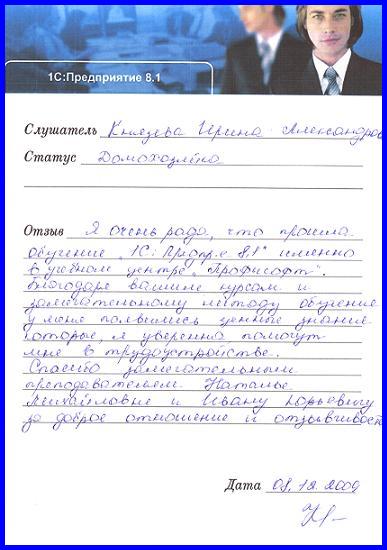 1С:Предприятие 8.1
Слушатель Князева Ирина Александров
Статус Домохозяйка
Отзыв Я очень рада, что прошла
обучение "1С: Предпр-е 8.1" именно
в учебном центре "Профисофт".
Благодаря вашим курсам и
замечательному методу обучения
у меня появились ценные знания
которые, я уверенна помогут
мне в трудоустройстве.
Спасибо замечательным
преподавателем Наталье
Михайловне и Ивану Юрьевичу
за доброе отношение и отзывчивость
Дата 08.12.2009